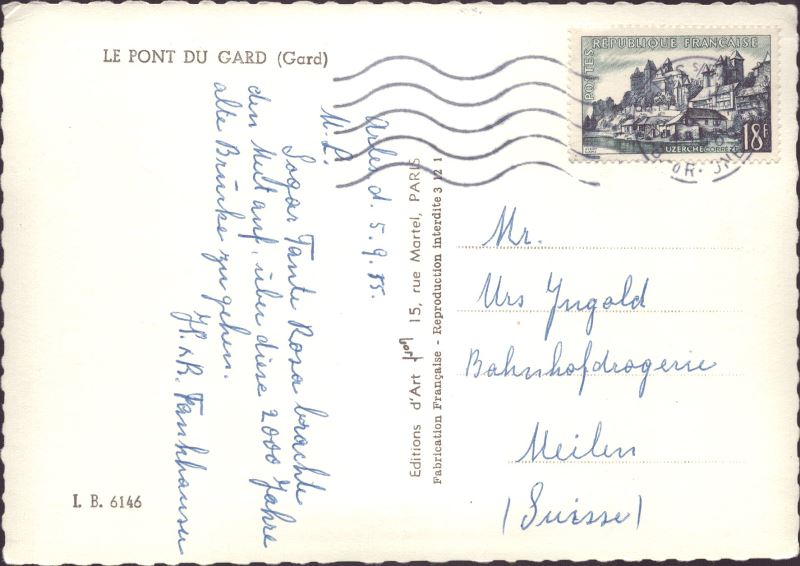 LE PONT DU GARD (Gard)
Arles d. 5.9.55.
M. L.
Sogar Tante Rosa brachte
den Mut auf, über diese 2000 Jahre
alte Brücke zu gehen.
H. & R. Fankhauser
I. B. 6146
Editions d'Art 15, rue Martel, PARIS
Fabrication Française - Reproduction interdite 3 12 1
POSTES
RÉPUBLIQUE FRANÇAISE
UZERCHE CORRÈZE
18F
Mr.
Urs Ingold
Bahnhofdrogerie
Meilen
(Suisse)